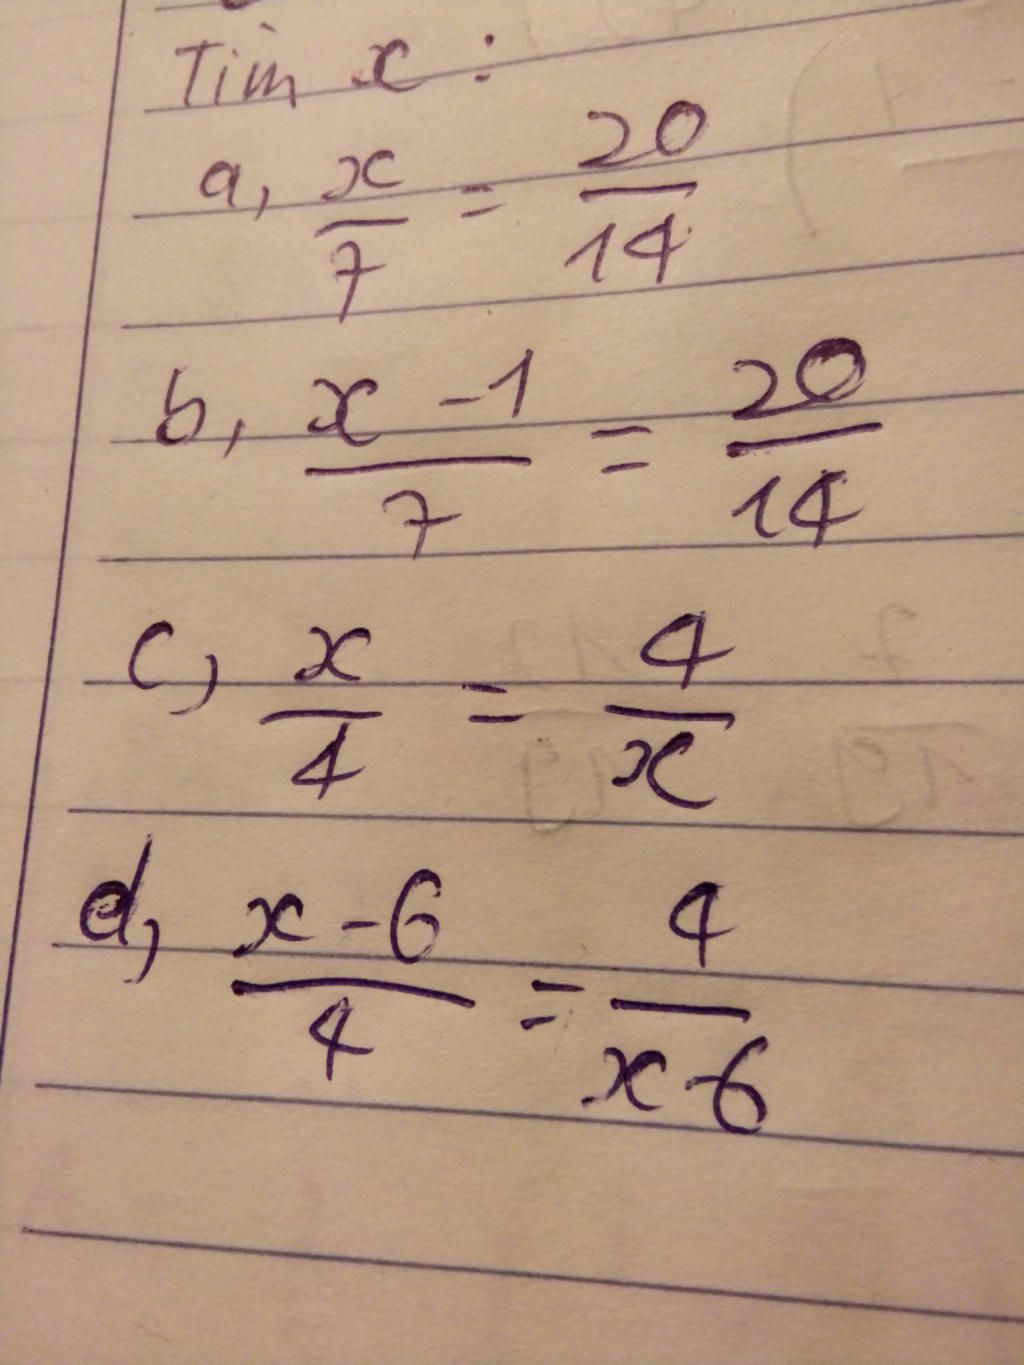 Tìm x :
a, x/7 = 20/14
b, x-1/7 = 20/14
c, x/4 = 4/x
d, x-6/4 = 4/x-6